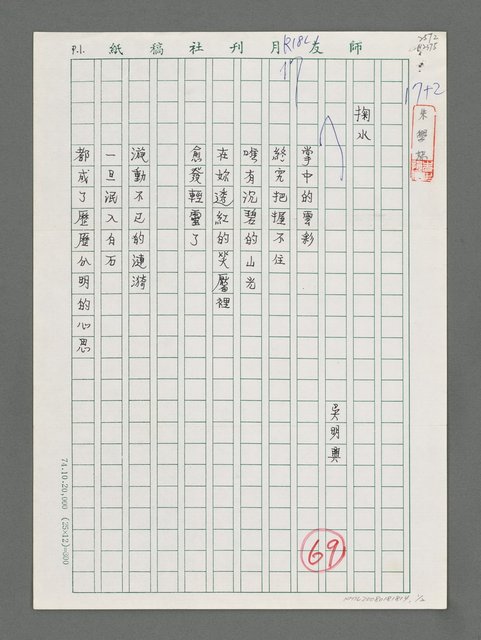 師友月刊社稿紙
P.1.
R182
17
17+2
掬水
吳明興
掌中的雲彩
終究把握不住
唯有沉碧的山光
在妳透紅的笑靨裡
愈發輕靈了
漉動不已的漣漪
一旦泯入白石
都成了歷歷分明的心思
69
74.10.20,000 (25×12)=300